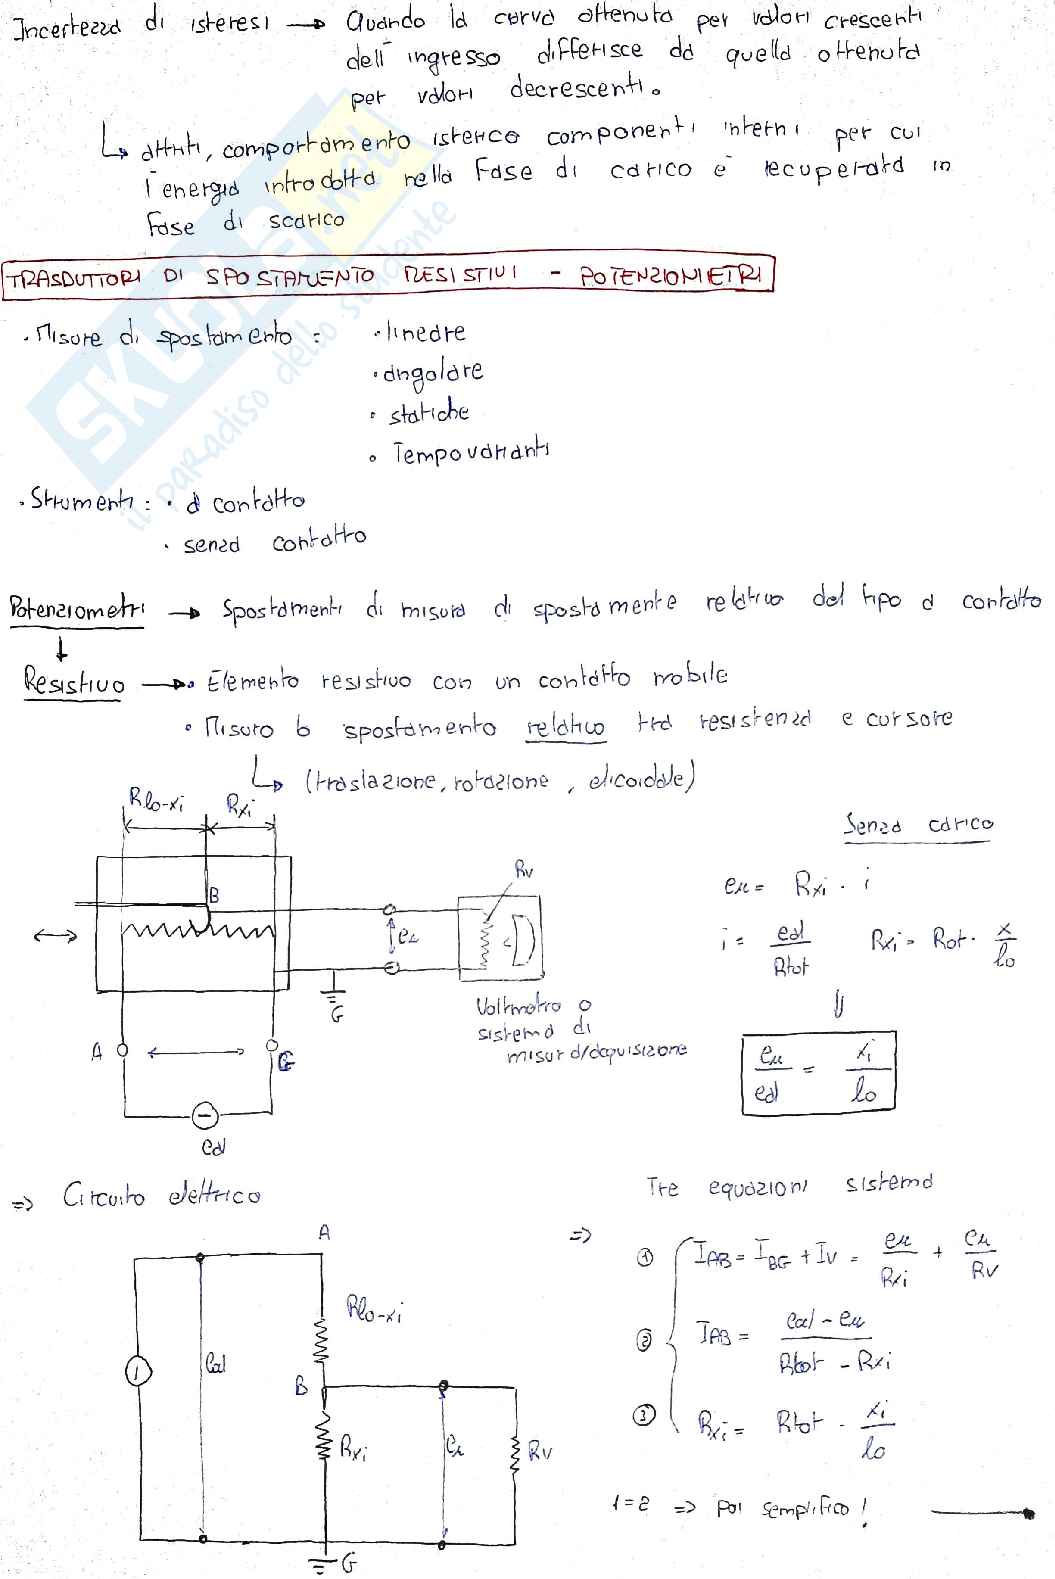 Incertezza di isteresi → Quando la curva ottenuta per valori crescenti
dell'ingresso differisce da quella ottenuta
per valori decrescenti.
↳ attriti, comportamento isterico componenti interni per cui
l'energia introdotta nella fase di carico è recuperata in
fase di scarico
TRASDUTTORI DI SPOSTAMENTO RESISTIVI - POTENZIOMETRI
· Misure di spostamento : · lineare
· angolare
· statiche
· Tempovarianti
· Strumenti : · a contatto
· senza contatto
Potenziometri → Spostamenti di misura di spostamente relativo del tipo a contatto
↓
Resistivo → · Elemento resistivo con un contatto mobile
· Misuro lo spostamento relativo tra resistenza e cursore
↳ (traslazione, rotazione, elicoidale)
Rlo-xi Rxi
Senza carico
Rv
B
eu = Rxi · i
eu
i = eal / Rtot Rxi = Rot · x / lo
G
⇓
Voltmetro o
sistema di
misura/acquisizione
A G
eu / eal = xi / lo
eal
⇒ Circuito elettrico
Tre equazioni sistema
A
⇒ ① IAB = IBG + Iv = eu / Rxi + eu / Rv
Rlo-xi
② IAB = eal - eu / Rtot - Rxi
eal
B
③ Rxi = Rtot · xi / lo
Rxi eu Rv
1=2 ⇒ poi semplifico! →
G
SKUOLA.net
il paradiso dello studente